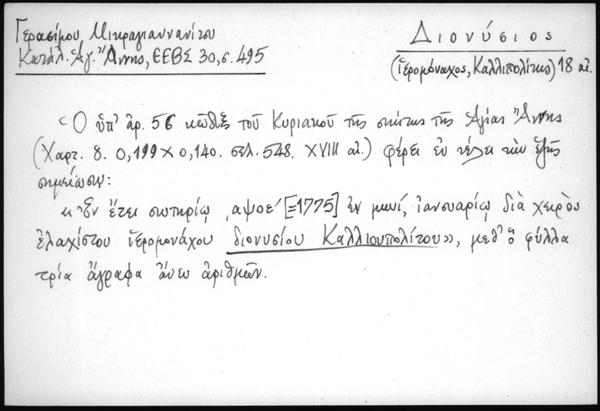 Γερασίμου Μικραγιαννανίτου
Κατάλ. Ἁγ. Ἄννης, ΕΕΒΣ 30, σ. 495
Διονύσιος
(ἱερομόναχος, Καλλιπολίτης) 18 αἰ.
Ὁ ὑπ' ἀρ. 56 κῶδιξ τοῦ Κυριακοῦ τῆς σκήτης τῆς Ἁγίας Ἄννης
(Χαρτ. 8. 0,199 × 0,140. σελ. 548. XVIII αἰ.) φέρει ἐν τέλει τὴν ἑξῆς
σημείωσιν:
«Ἐν ἔτει σωτηρίῳ ͵αψοε' [=1775] ἐν μηνί, ἰανσυαρίῳ διὰ χειρὸς
ἐλαχίστου ἱερομονάχου διονυσίου Καλλιουπολίτου», μεθ' ὃ φύλλα
τρία ἄγραφα ἄνευ ἀριθμῶν.